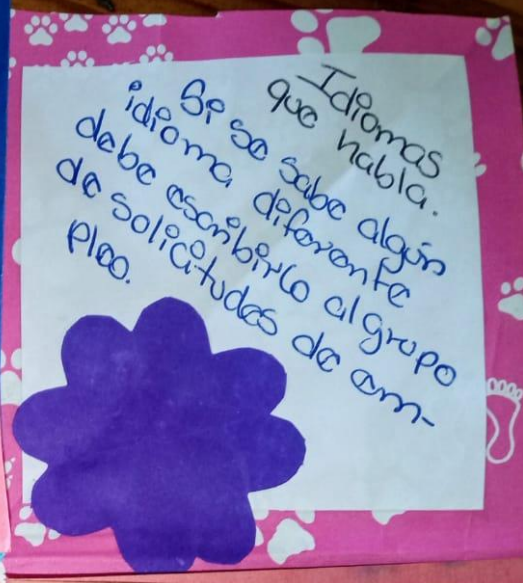 Idiomas
que habla.
Si se sabe algún
idioma diferente
debe escribirlo al grupo
de solicitudes de em-
pleo.